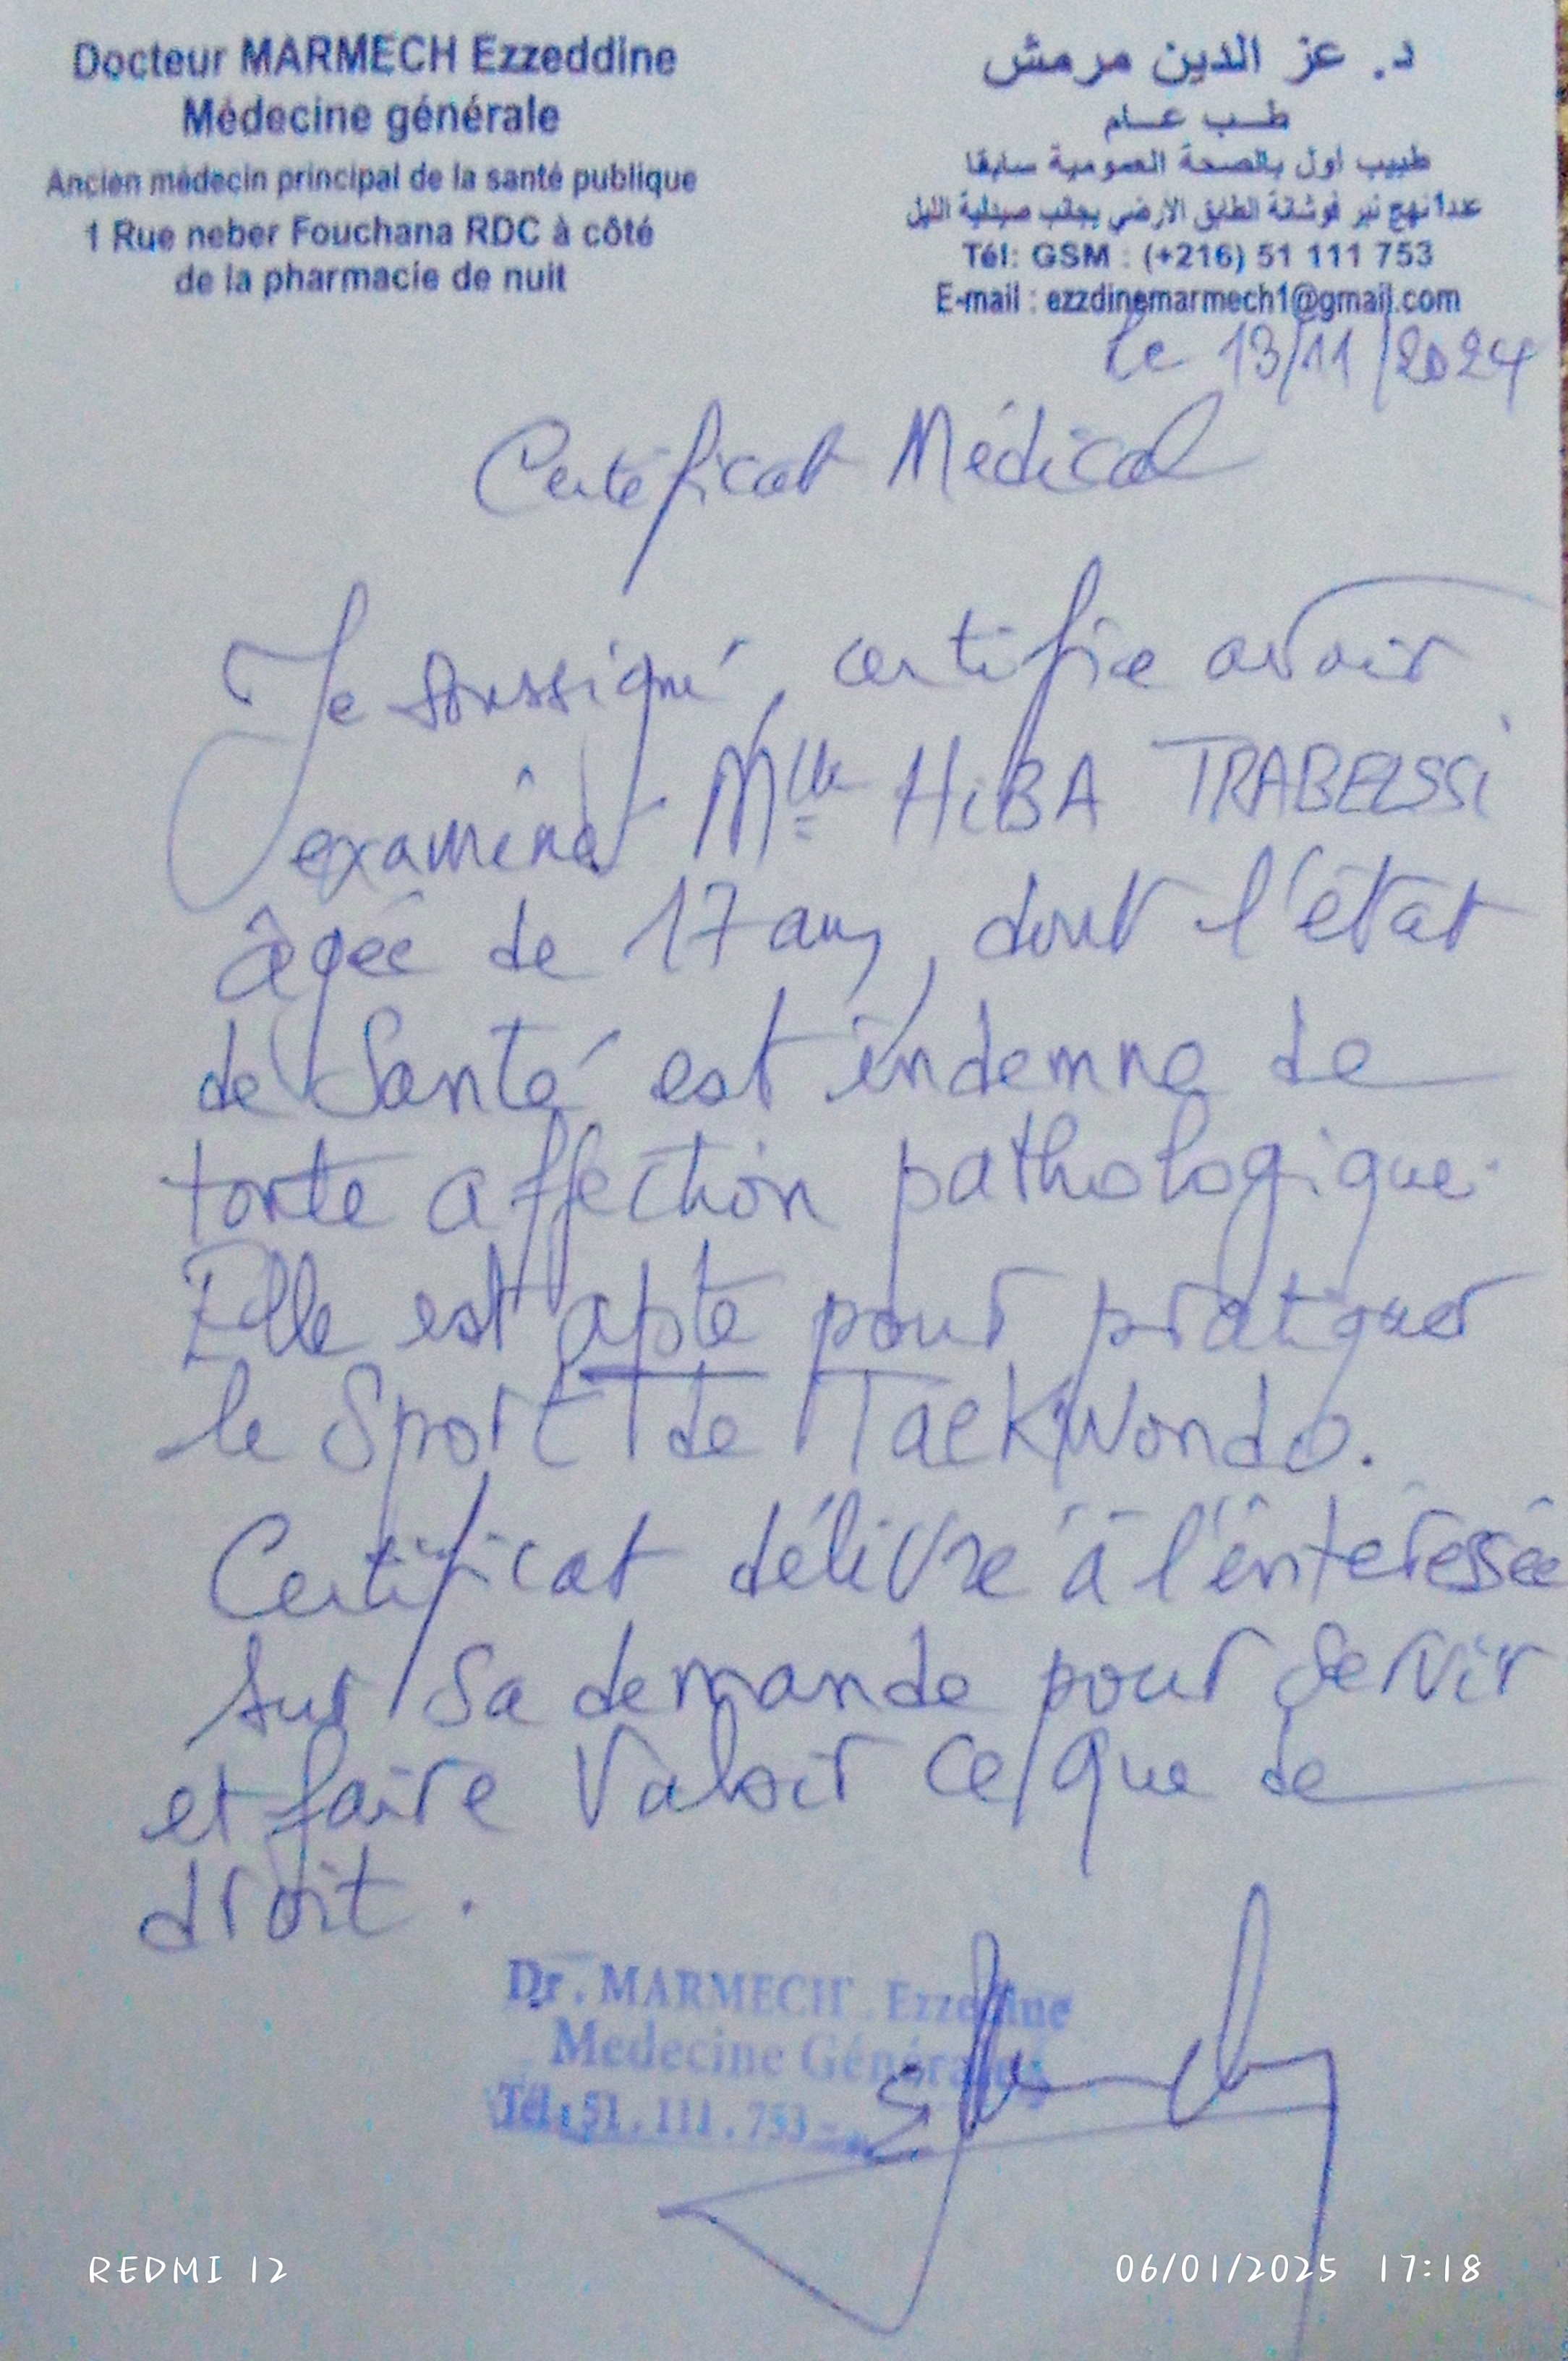 Docteur MARMECH Ezzeddine
Médecine générale
Ancien médecin principal de la santé publique
1 Rue neber Fouchana RDC à côté
de la pharmacie de nuit
د. عز الدين مرمش
طب عام
طبيب أول بالصحة العمومية سابقا
عدد1 نهج نبر فوشانة الطابق الأرضي بجانب صيدلية الليل
Tél: GSM : (+216) 51 111 753
E-mail : ezzdinemarmech1@gmail.com
le 13/11/2024
Certificat Médical
Je soussigné, certifie avoir
examiné Mlle HiBA TRABELSSi
âgée de 17 ans, dont l'état
de Santé est indemne de
toute affection pathologique.
Elle est apte pour pratiquer
le Sport de TaeKWondo.
Certificat délivré à l'intéressée
sur sa demande pour servir
et faire Valoir ce que de
droit.
Dr. MARMECH Ezzedine
Medecine Générale
Tél: 51.111.753
REDMI 12
06/01/2025 17:18